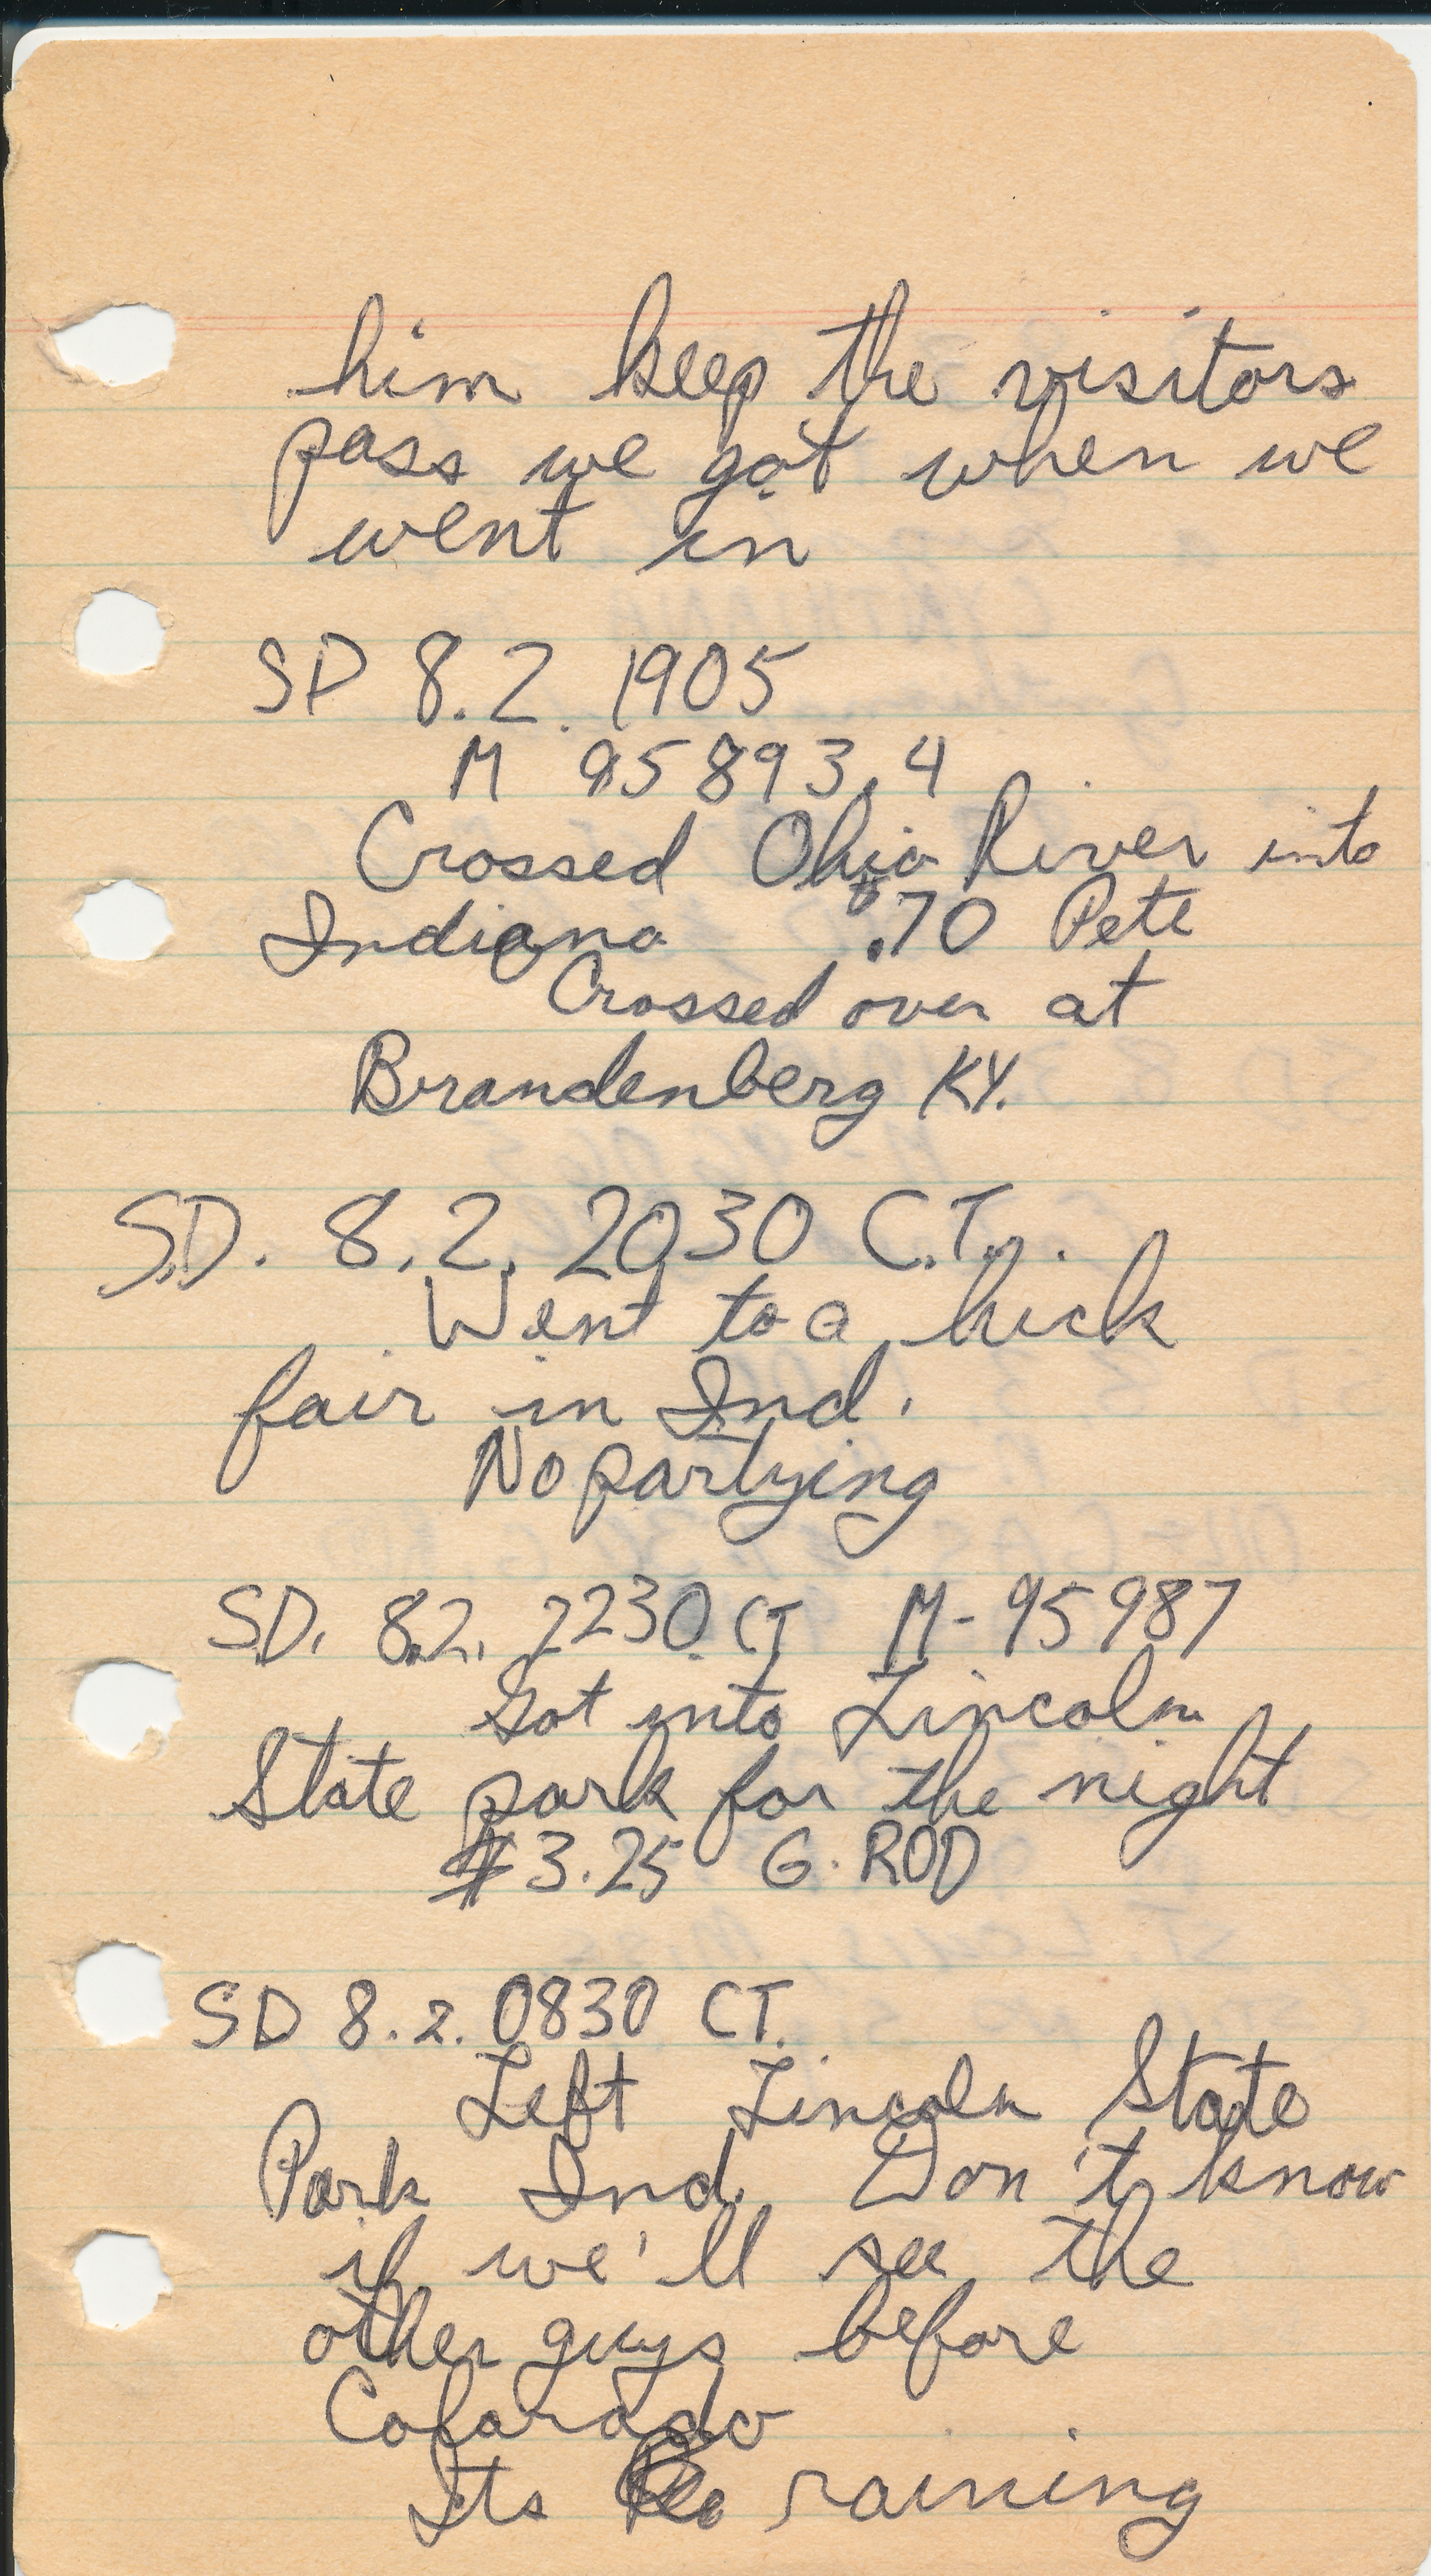 him keep the visitors
pass we got when we
went in
SD 8.2. 1905
M 95893.4
Crossed Ohio River into
Indiana $.70 Pete
Crossed over at
Brandenberg KY.
S.D. 8.2. 2030 C.T.
Went to a hick
fair in Ind.
No partying
S.D. 8.2. 2230 CT M-95987
Got into Lincoln
State park for the night
$3.25 G. ROD
SD 8.2. 0830 CT.
Left Lincoln State
Park Ind. Don't know
if we'll see the
other guys before
Colorado
Its raining